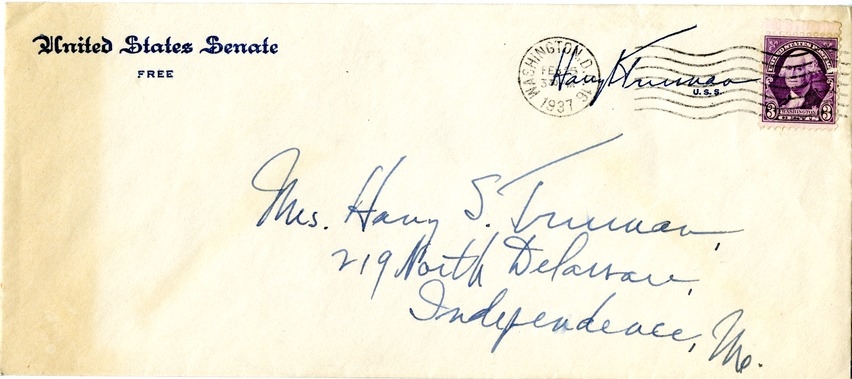 United States Senate
FREE
WASHINGTON, D.C.
FEB
3
1937
Harry S Truman
U. S. S.
UNITED STATES POSTAGE
WASHINGTON
3 3
Mrs. Harry S. Truman,
219 North Delaware,
Independence, Mo.